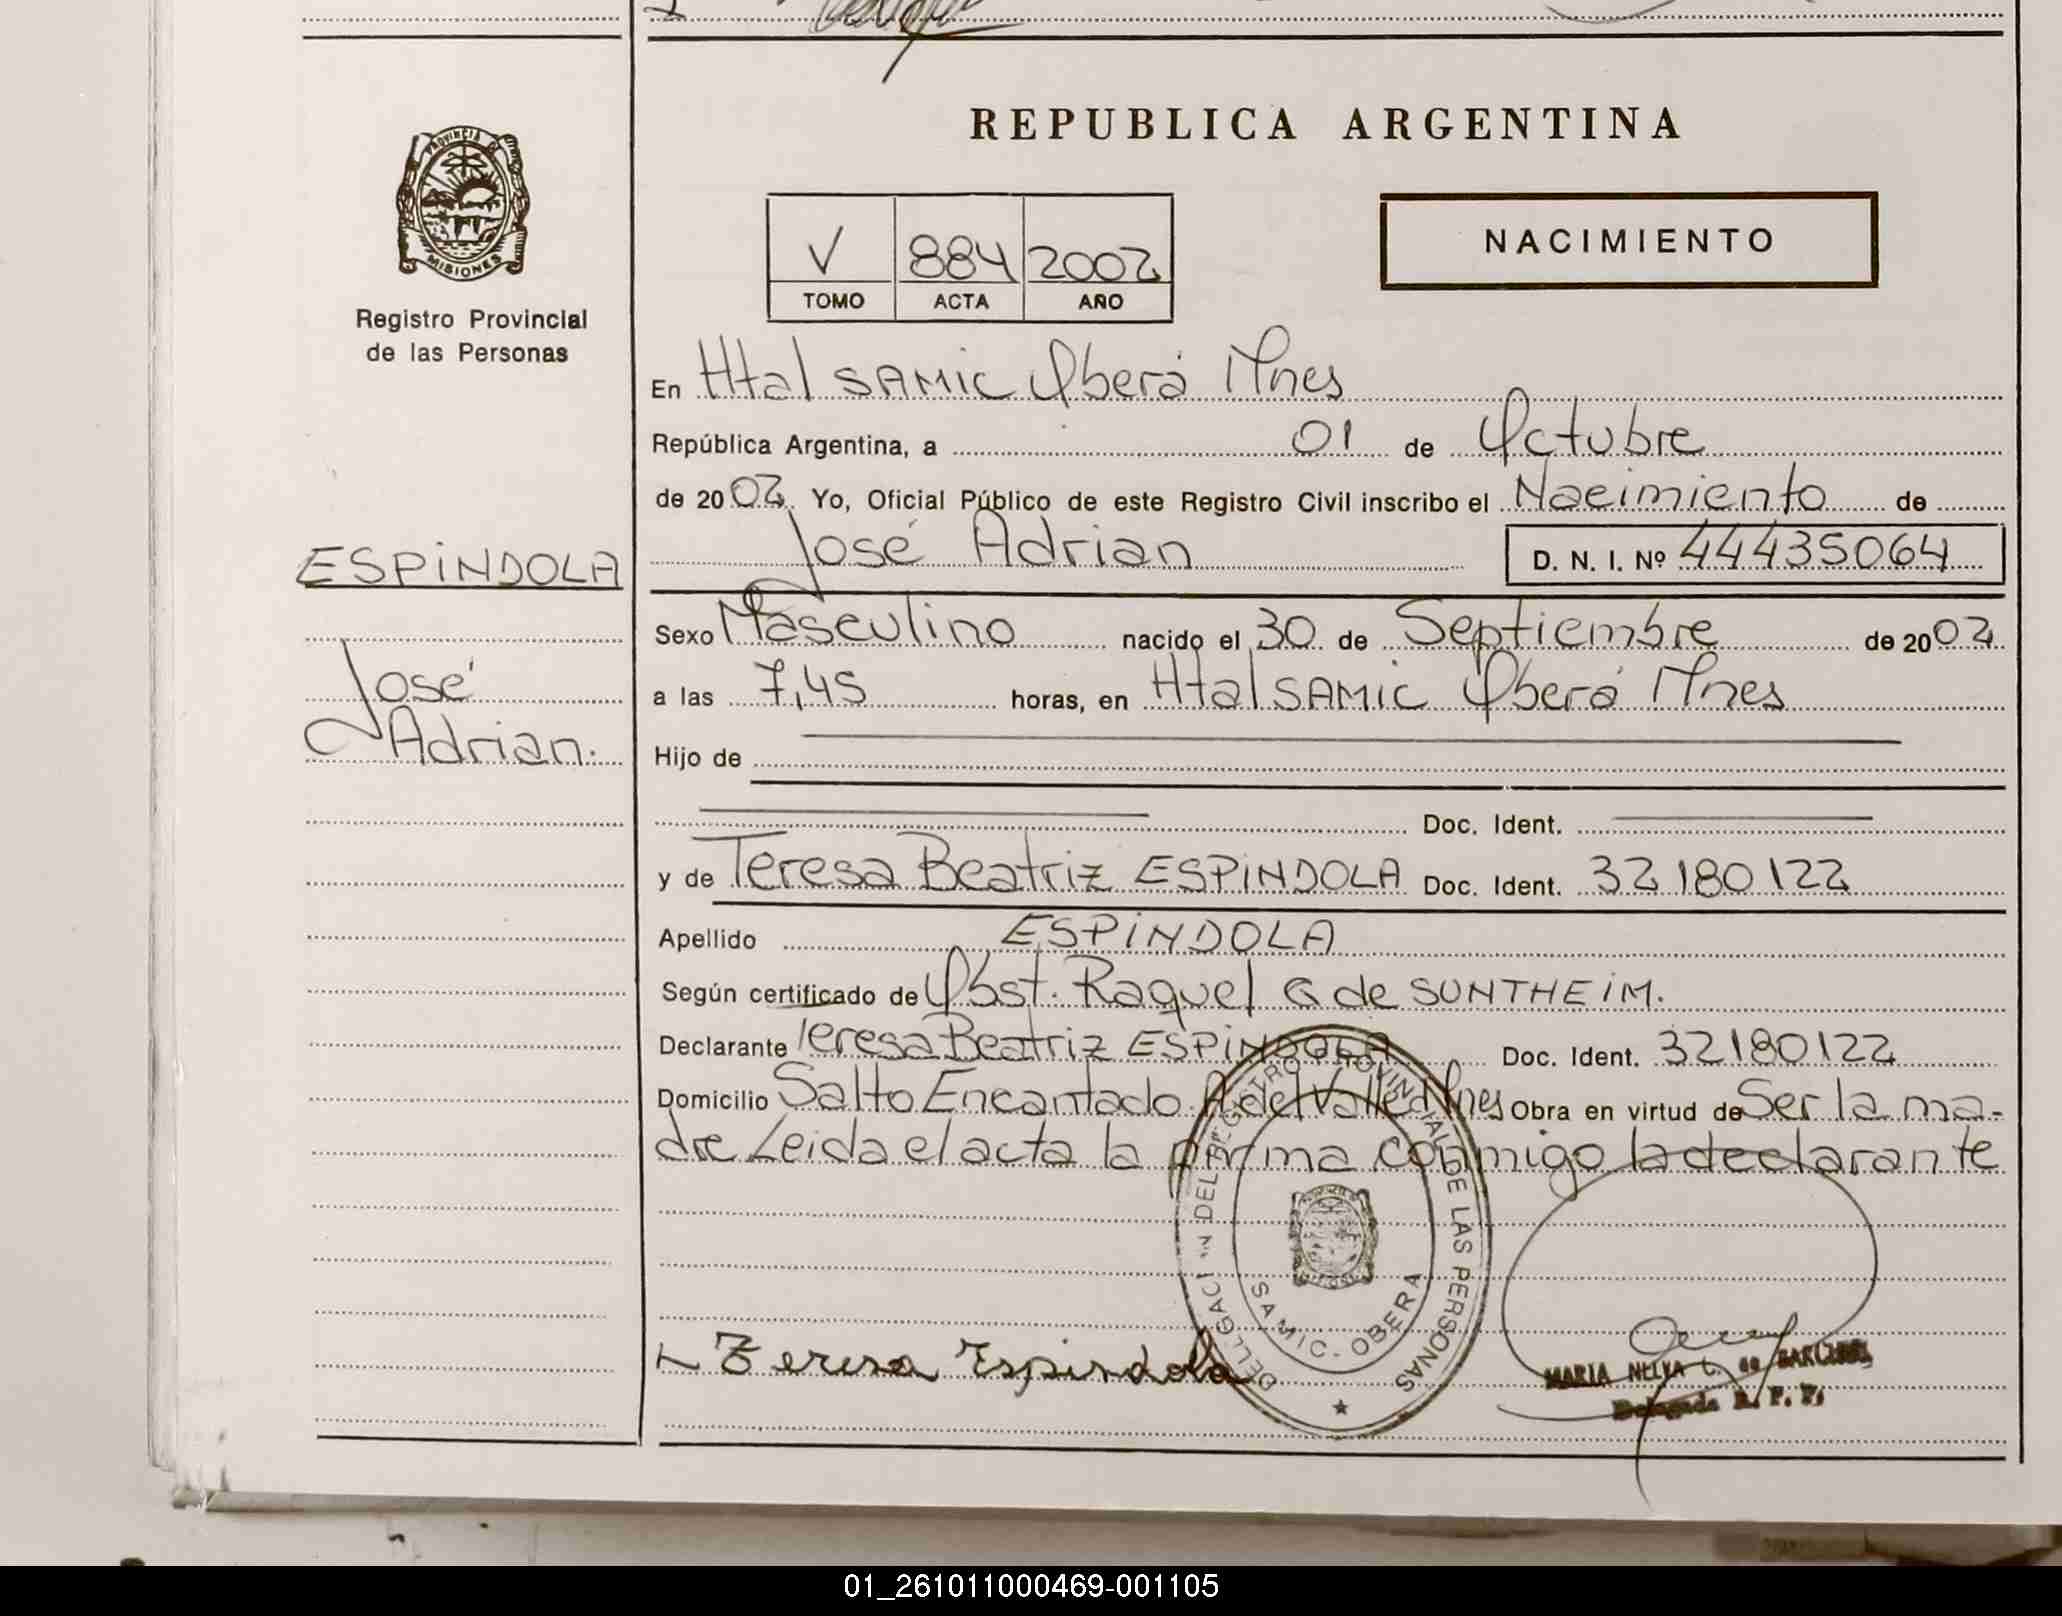 REPUBLICA ARGENTINA
PROVINCIA DE
MISIONES
Registro Provincial
de las Personas
V 884 2002
TOMO ACTA AÑO
NACIMIENTO
En Htal SAMIC Oberá Mnes
República Argentina, a 01 de Octubre
de 2002. Yo, Oficial Público de este Registro Civil inscribo el Nacimiento de
José Adrian D. N. I. Nº 44435064
ESPINDOLA
José
Adrian.
Sexo Masculino nacido el 30 de Septiembre de 2002
a las 7,45 horas, en Htal SAMIC Oberá Mnes
Hijo de
Doc. Ident.
y de Teresa Beatriz ESPINDOLA Doc. Ident. 32 180 122
Apellido ESPINDOLA
Según certificado de Obst. Raquel G de SUNTHEIM.
Declarante Teresa Beatriz ESPINDOLA Doc. Ident. 32180122
Domicilio Salto Encantado A del Valle Mnes Obra en virtud de Ser la ma-
dre Leida el acta la firma conmigo la declarante
DEL REGISTRO PROVINCIAL DE LAS PERSONAS
SAMIC - OBERA
Teresa Espindola
MARIA NELVA C. de
Delegada R. P. P.
01_261011000469-001105